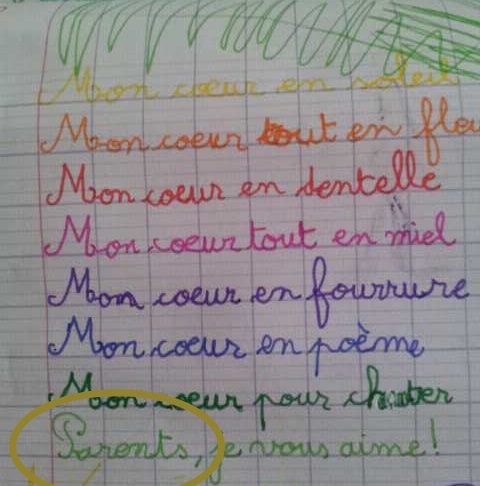 Mon coeur en soleil
Mon coeur tout en fleu
Mon coeur en dentelle
Mon coeur tout en miel
Mon coeur en fourrure
Mon coeur en poème
Mon coeur pour chanter
Parents, je vous aime!